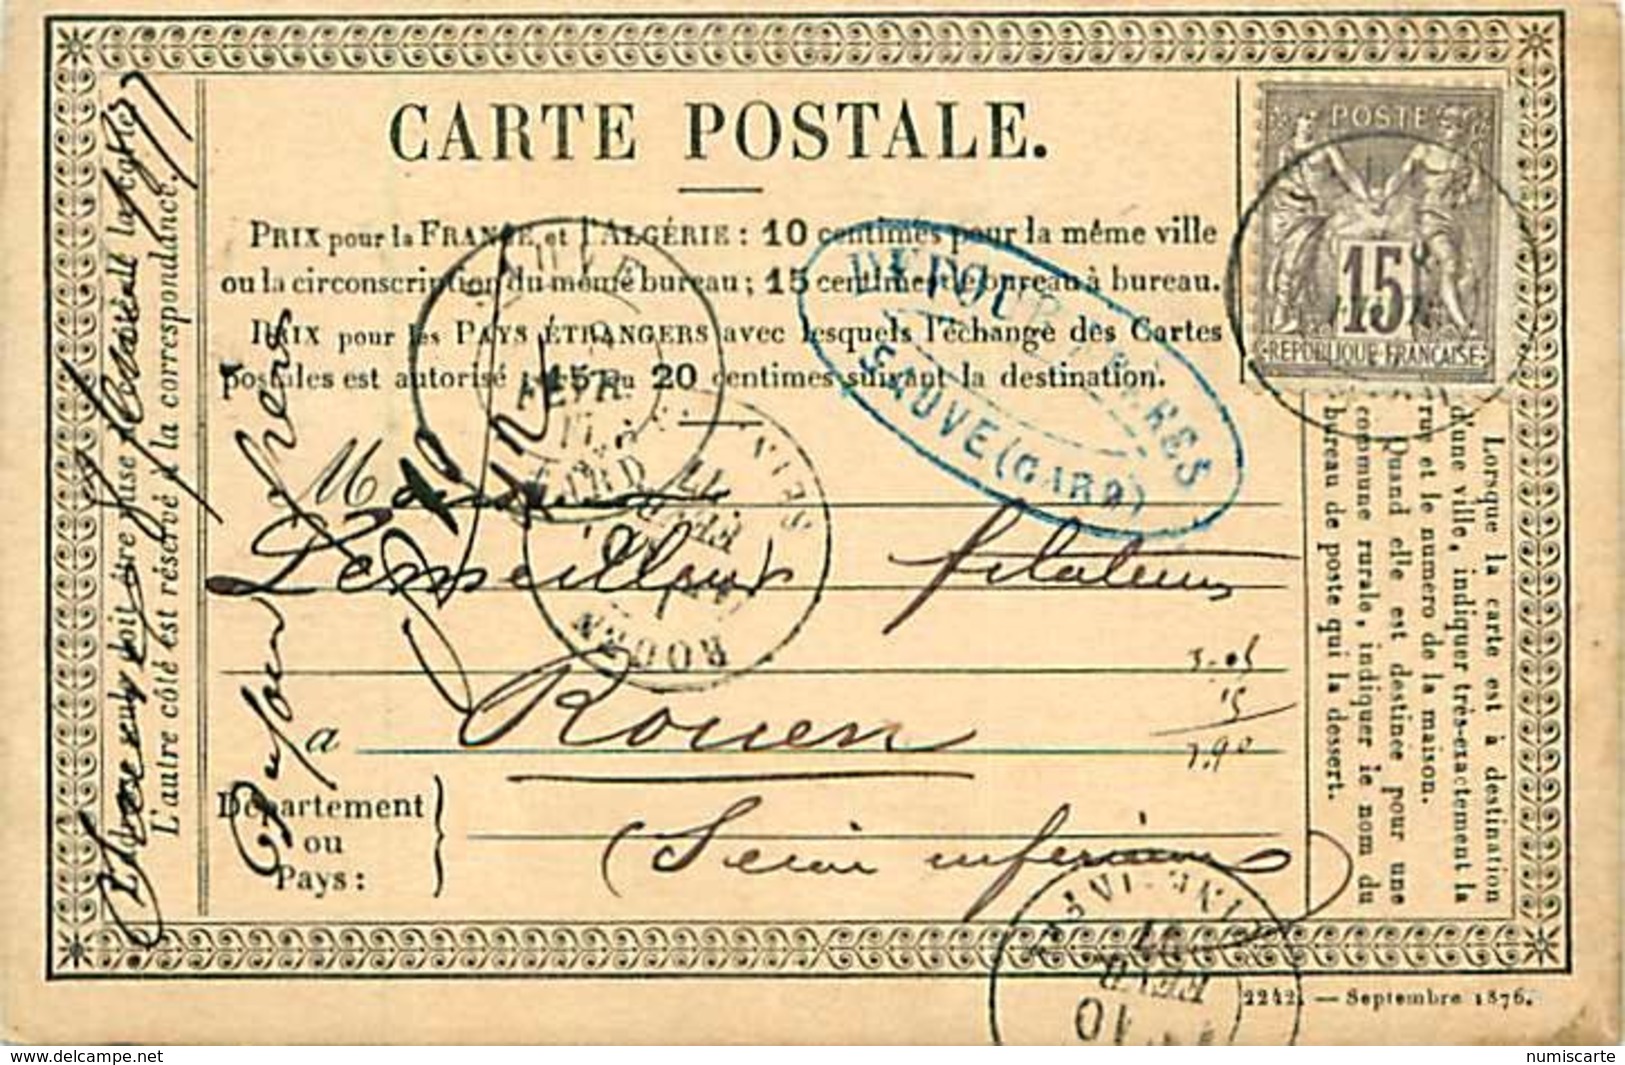 CARTE POSTALE.
PRIX pour la FRANCE et l'ALGÉRIE : 10 centimes pour la même ville
ou la circonscription du même bureau ; 15 centimes de bureau à bureau.
PRIX pour les PAYS ÉTRANGERS avec lesquels l'échange des Cartes
postales est autorisé : 15 ou 20 centimes suivant la destination.
POSTE
15
REPUBLIQUE FRANÇAISE
DEPOUR FRERES
SAUVE (GARD)
FEVR.
ROUEN
M
filateurs
3.05
15
à Rouen
Département
ou
Pays :
(Seine inférieure
L'autre côté est réservé à la correspondance.
Lorsque la carte est à destination
d'une ville, indiquer très-exactement la
rue et le numéro de la maison.
Quand elle est destinée pour une
commune rurale, indiquer le nom du
bureau de poste qui la dessert.
FEVR
10
2242. — Septembre 1876.
www.delcampe.net
numiscarte